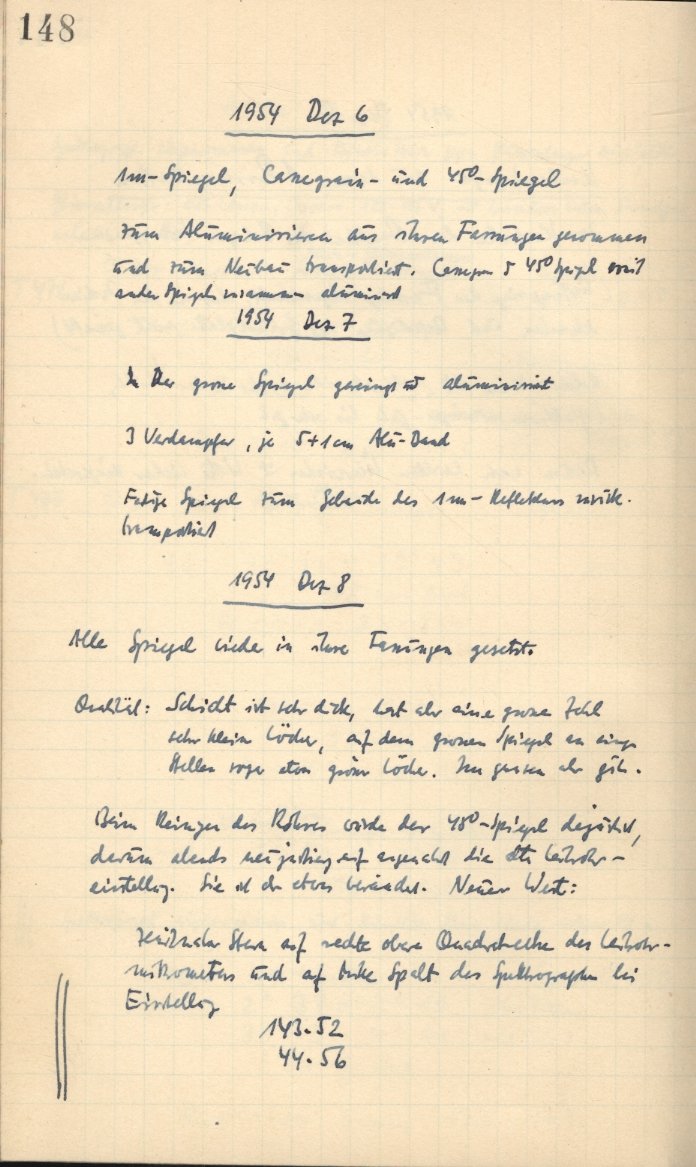 148
1954 Dez 6
1m-Spiegel, Cassegrain- und 45°-Spiegel
zum Aluminisieren aus ihren Fassungen genommen
und zum Neubau transportiert. Cassegr 45° Spiegel mit
ander Spiegeln zusammen aluminisiert
1954 Dez 7
Der grosse Spiegel gereinigt und aluminisiert
3 Verdampfer, je 5+1cm Alu-Band
Fertige Spiegel zum Gebäude des 1m-Reflektors zurück-
transportiert
1954 Dez 8
Alle Spiegel wieder in ihre Fassungen gesetzt.
Qualität: Schicht ist sehr dick, hat aber eine grosse Zahl
sehr kleine Löcher, auf dem grossen Spiegel an einige
Stellen sogar etwas grössere Löcher. Im ganzen aber gut.
Beim Reinigen des Rohres wurde der 45°-Spiegel dejustiert,
darum abends neujustierung auf die alte Leitrohr-
einstellung. Sie ist etwas verändert. Neuer Wert:
Zentraler Stern auf rechte obere Quadratecke des Leitrohr-
mikrometers und auf Spalt des Spektrographen bei
Einstellung
143.52
44.56